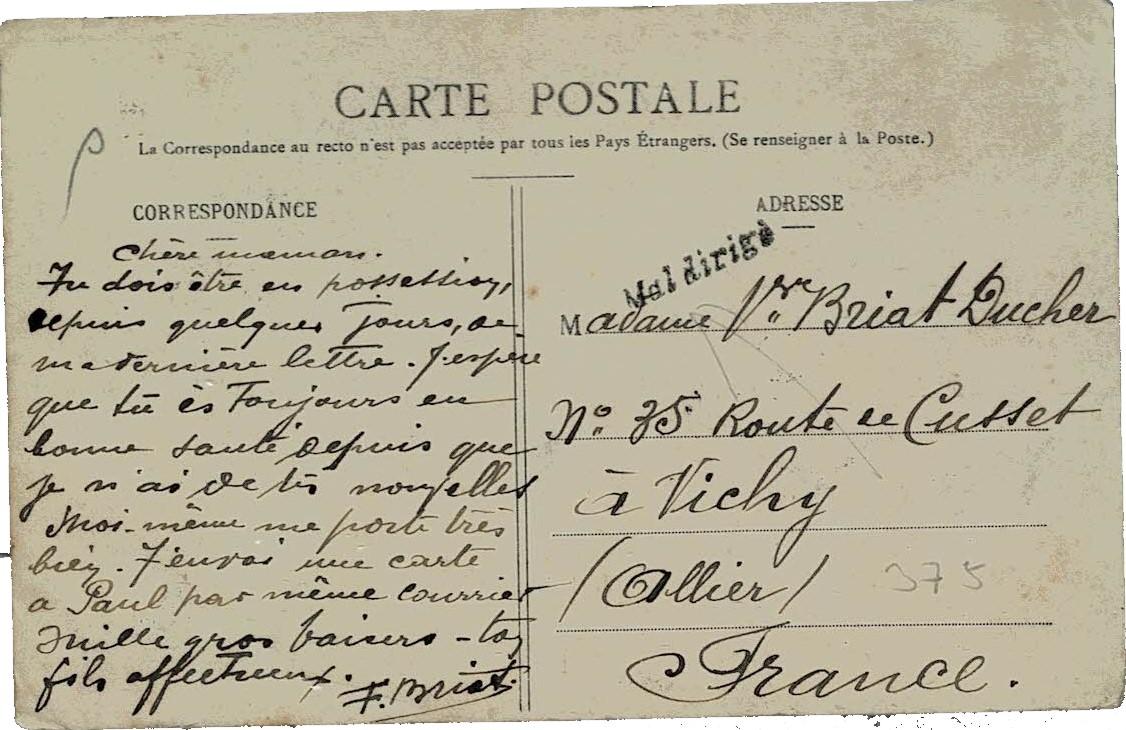 CARTE POSTALE
La Correspondance au recto n'est pas acceptée par tous les Pays Étrangers. (Se renseigner à la Poste.)
CORRESPONDANCE
Chère maman.
Tu dois être en possession,
depuis quelques jours, de
ma dernière lettre. J'espère
que tu ès Toujours en
bonne santé, depuis que
je n'ai de tes nouvelles
Moi-même me porte très
bien. J'envoi une carte
a Paul par même courrier
mille gros baisers - ton
fils affectueux.
F. Briat.
ADRESSE
Mal dirigé
Madame Vve Briat Ducher
N° 35 Route de Cusset
à Vichy
(Allier)
375
France.